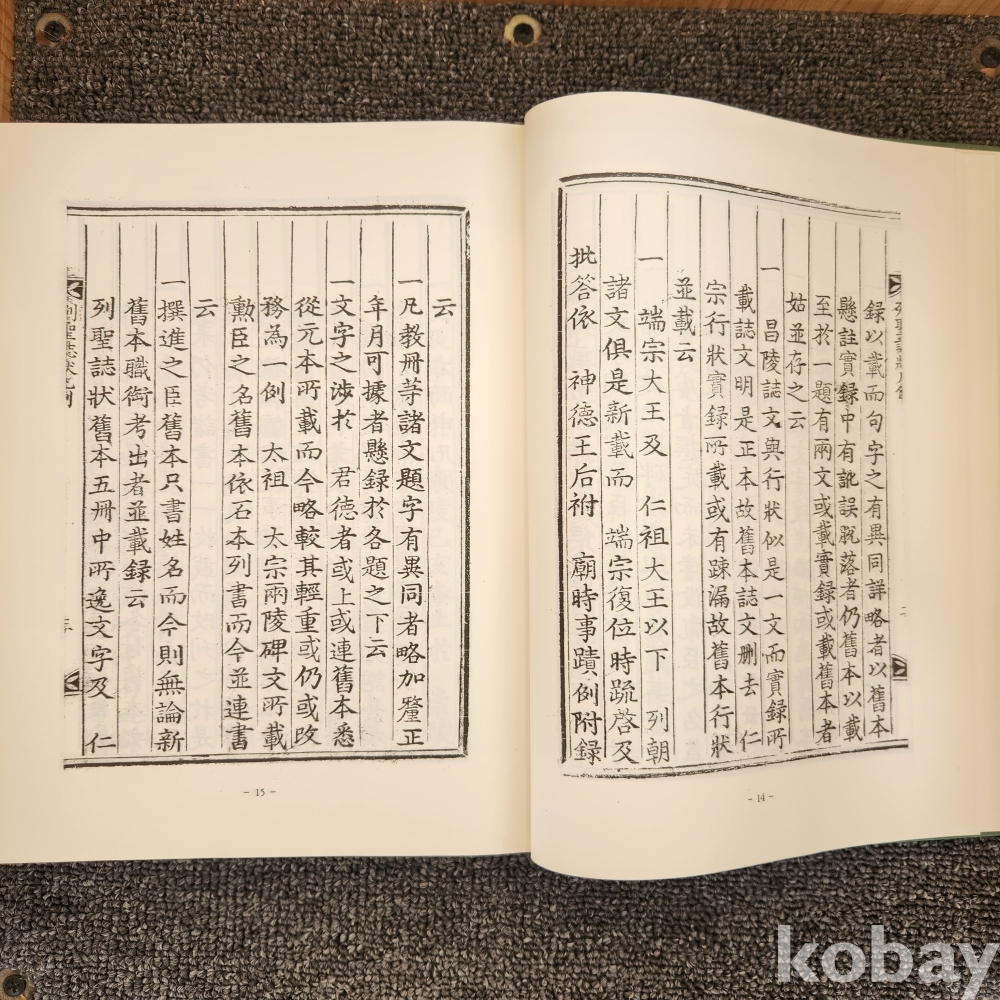 錄以載而句字之有異同詳略者以舊本
懸註實錄中有訛誤脫落者仍舊本以載
至於一題有兩文或載實錄或載舊本者
姑並存之云
一 昌陵誌文與行狀似是一文而實錄所
載誌文明是正本故舊本誌文删去 仁
宗行狀實錄所載或有踈漏故舊本行狀
並載云
一 端宗大王及 仁祖大王以下 列朝
諸文俱是新載而 端宗復位時䟽啓及
批答依 神德王后祔 廟時事蹟例附錄
- 14 -
云
一凡教冊等諸文題字有異同者略加釐正
年月可據者懸錄於各題之下云
一文字之涉於 君德者或上或連舊本悉
從元本所載而今略較其輕重或仍或改
務為一例 太祖 太宗兩陵碑文所載
勲臣之名舊本依石本列書而今並連書
云
一撰進之臣舊本只書姓名而今則無論新
舊本職銜考出者並載錄云
列聖誌狀舊本五冊中所逸文字及 仁
- 15 -
kobay